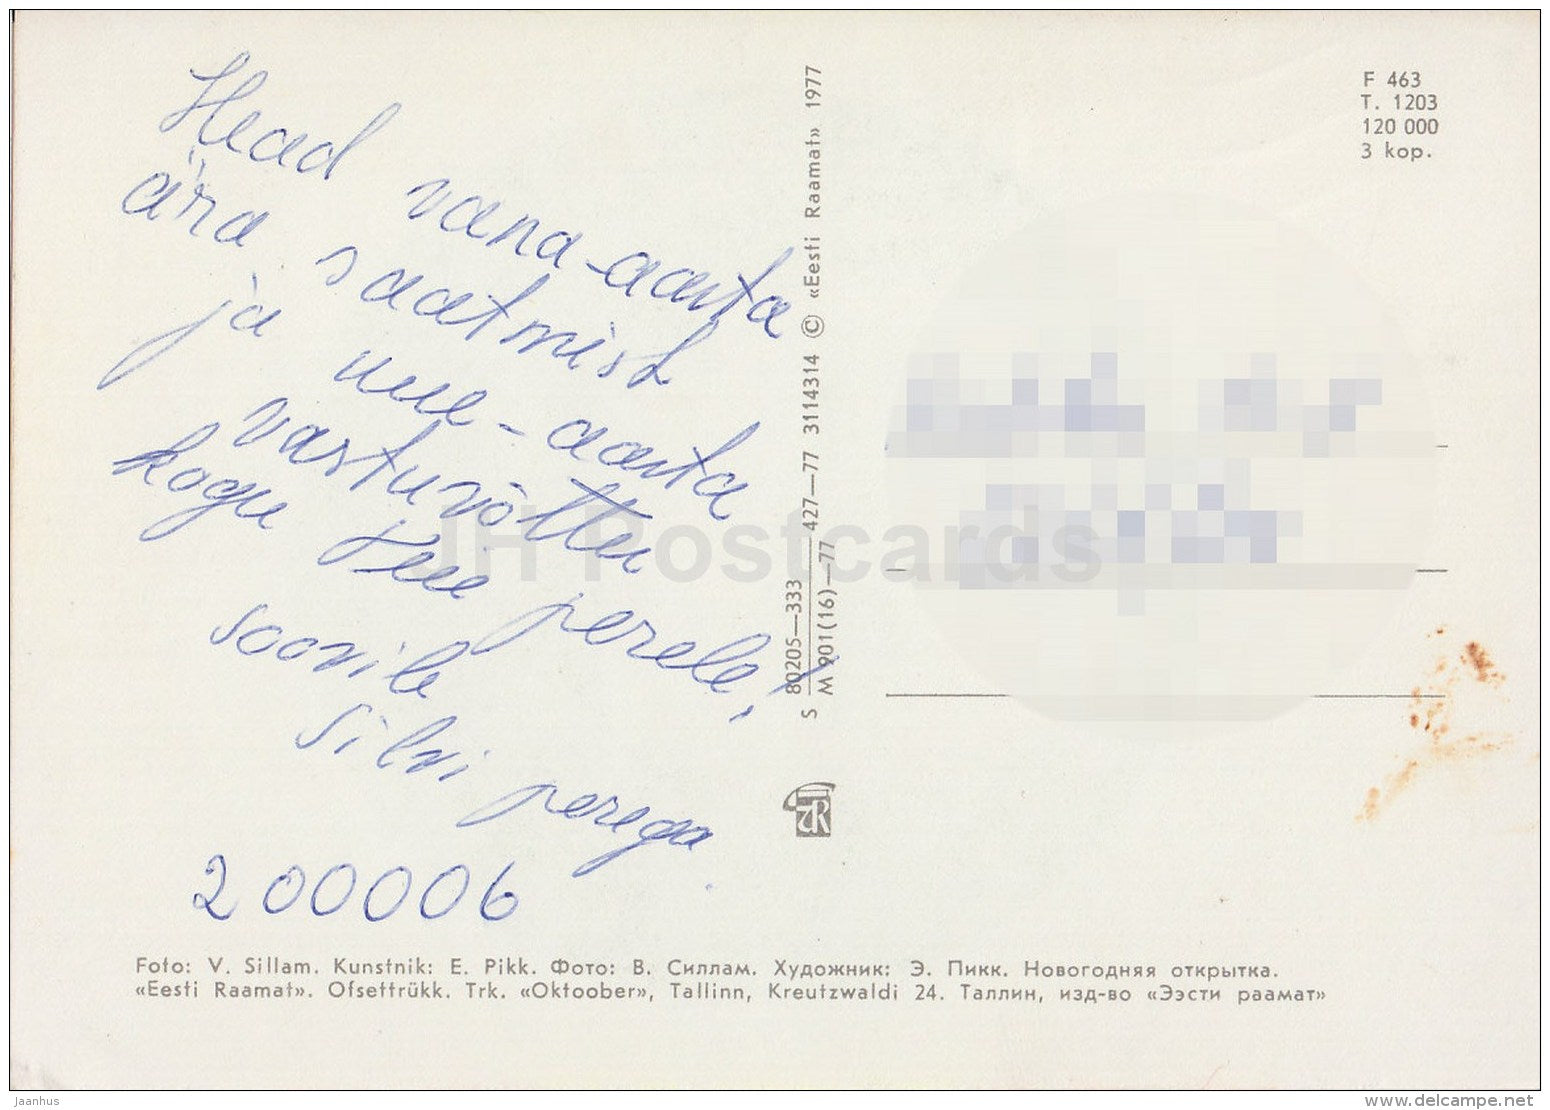 Head vana-aasta
ära saatmist
ja uue-aasta
vastuvõttu
kogu Teie perele,
soovib
Silvi perega
200006
F 463
T. 1203
120 000
3 kop.
S 80205—333 427—77 3114314 © «Eesti Raamat» 1977
M 901(16)—77
JH Postcards
Foto: V. Sillam. Kunstnik: E. Pikk. Фото: В. Силлам. Художник: Э. Пикк. Новогодняя открытка.
«Eesti Raamat». Ofsettrükk. Trk. «Oktoober», Tallinn, Kreutzwaldi 24. Таллин, изд-во «Ээсти раамат»
Jaanhus
www.delcampe.net